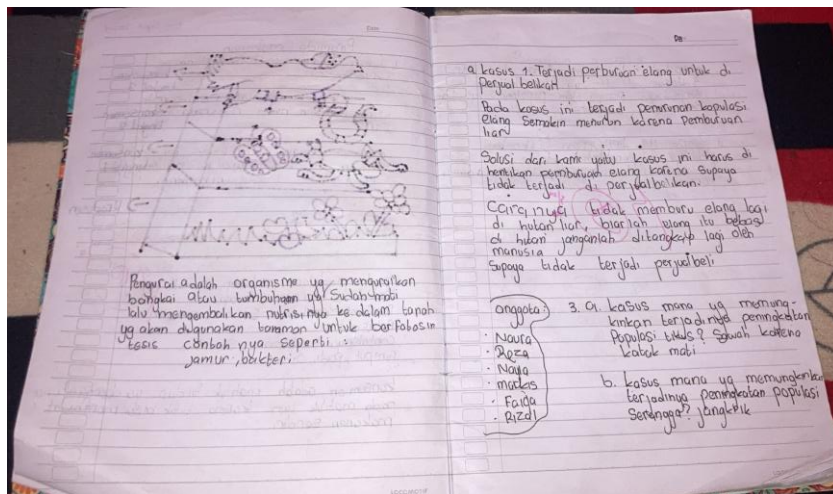 Pengurai adalah organisme yg menguraikan
bangkai atau tumbuhan yg Sudah mati
lalu mengembalikan nutrisinya ke dalam tanah
yg akan digunakan tanaman untuk berfotosin
tesis contoh nya seperti :
jamur, bakteri
a. kasus 1. Terjadi perburuan elang untuk di
perjual belikan
Pada kasus ini terjadi penurunan kopulasi
elang Semakin menurun karena pemburuan
liar
Solusi dari kami yaitu kasus ini harus di
hentikan pemburuan elang karena Supaya
tidak terjadi di perjualbelikan.
Cara nya tidak memburu elang lagi
di hutan liar, biarlah elang itu bebas
di hutan janganlah ditangkap lagi oleh
manusia
Supaya tidak terjadi perjualbeli
anggota :
• Naura
• Reza
• Nayla
• markis
• Faida
• Rizdi
3. a. kasus mana yg memung-
kinkan terjadinya peningkatan
Populasi tikus? Sawah karena
katak mati
b. kasus mana yg memungkinkan
terjadinya peningkatan populasi
Serangga? jangkrik